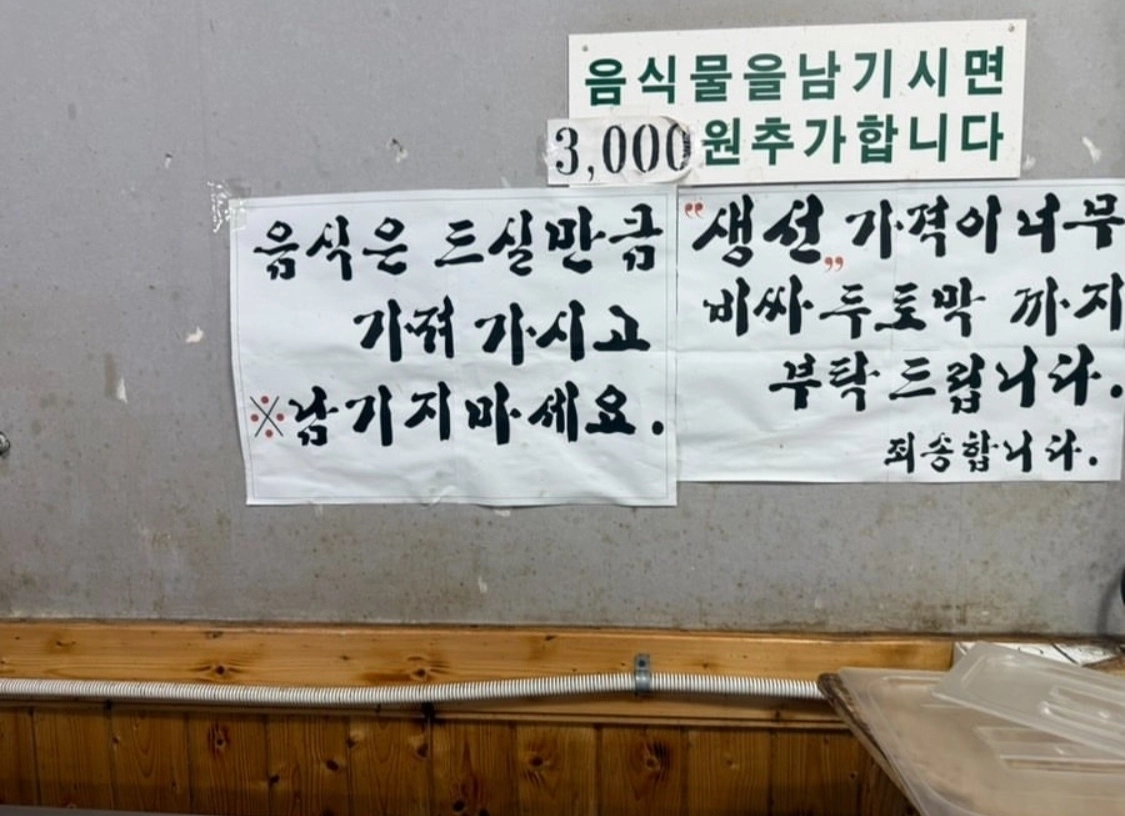 음식물을남기시면
3,000원추가합니다
음식은 드실만큼
가져 가시고
※남기지마세요.
"생선„가격이너무
비싸 두토막 까지
부탁 드립니다.
죄송합니다.